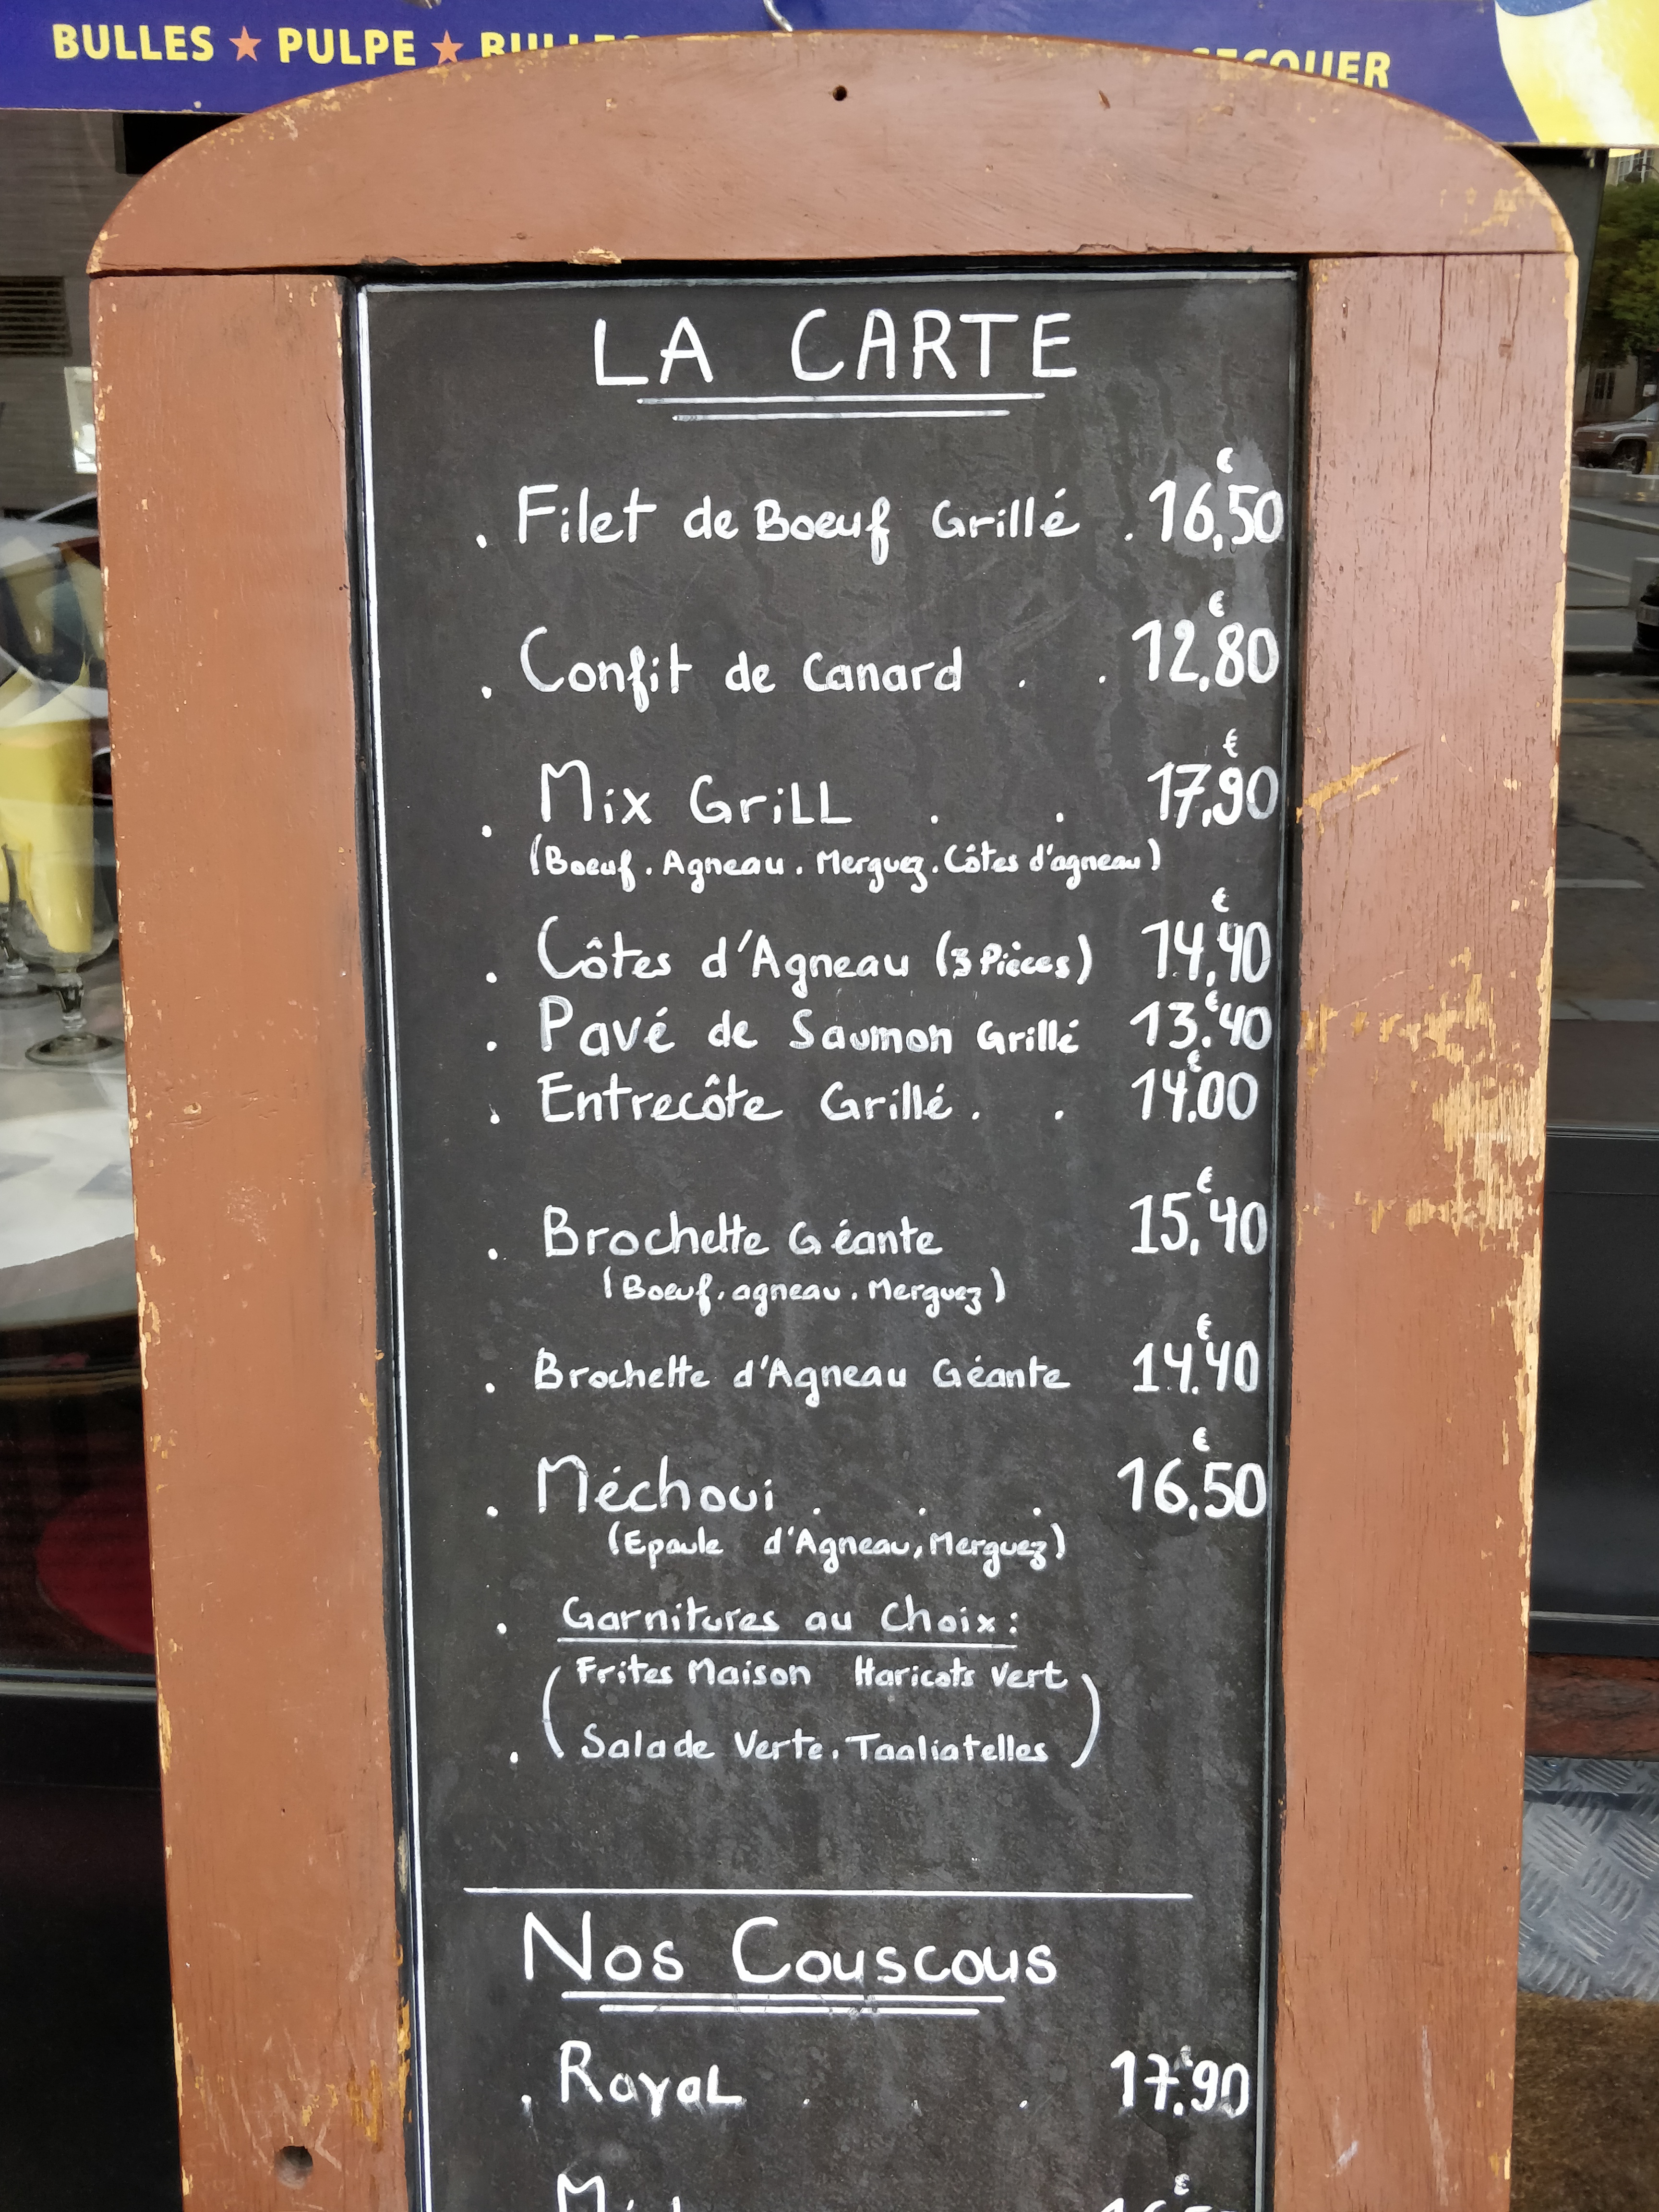 BULLES ★ PULPE ★
LA CARTE
. Filet de Boeuf Grillé . 16,50 €
. Confit de Canard . . 12,80 €
. Mix GriLL . . 17,90 €
(Boeuf. Agneau. Merguez. Côtes d'agneau)
. Côtes d'Agneau (3 Pièces) 14,40 €
. Pavé de Saumon Grillé 13.40 €
. Entrecôte Grillé . . 14.00 €
. Brochette Géante 15,40 €
(Boeuf. agneau. Merguez)
. Brochette d'Agneau Géante 14.40 €
. Méchoui . . . 16,50 €
(Epaule d'Agneau, Merguez)
. Garnitures au Choix :
(Frites Maison Haricots Vert
. Salade Verte. Taaliatelles)
Nos Couscous
. RoyaL . . . 17.90 €